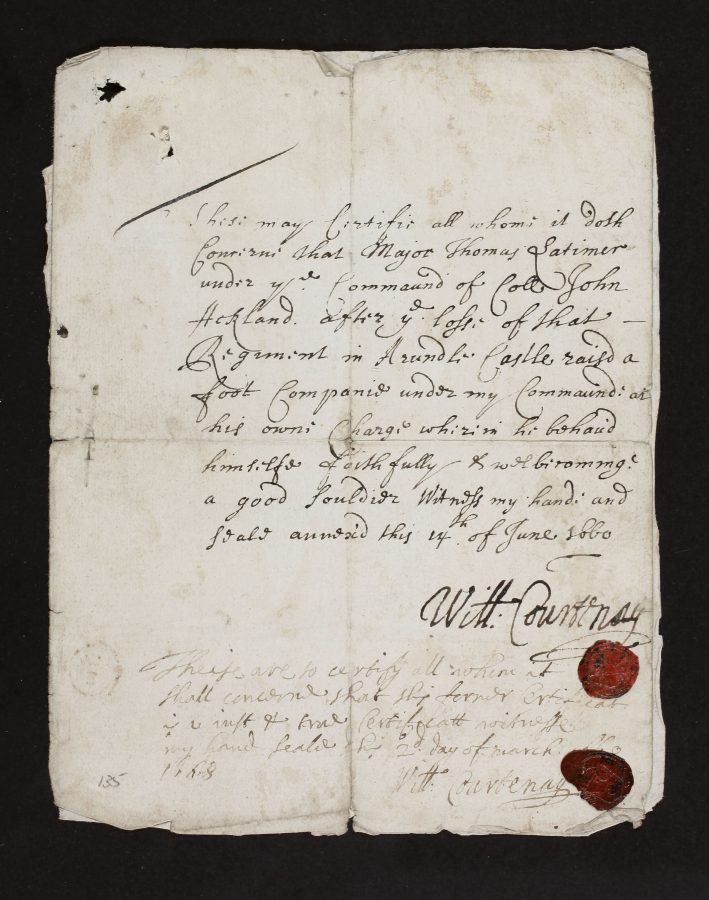 These may Certifie all whome it doth
Concerne that Major Thomas Latimer
under yᵉ Commaund of Coll John
Ackland. after yᵉ losse of that –
Regiment in Arundle Castle raisd a
foot Companie under my Commaund: at
his owne Charge wherein he behaud
himselfe faithfully & welbecommge
a good souldier Witness my hand: and
seale annex'd this 14th of June 1660
Will: Courtenay
Theise are to certify all whom at
shall concerne that the former Certificat
is a just & true Certificatt witnesse
my hand seale this 2d day of march
Will: Courtenay
135